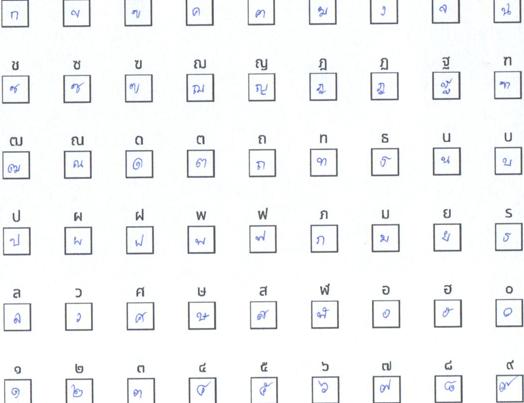 ก ข ฃ ค ฅ ฆ ง จ ฉ
ช ซ ฃ ฌ ญ ฎ ฏ ฐ ฑ
ช ซ ฃ ฌ ญ ฎ ฏ ฐ ฑ
ฒ ณ ด ต ถ ท ธ น บ
ฒ ณ ด ต ถ ท ธ น บ
ป ผ ฝ พ ฟ ภ ม ย ร
ป ผ ฝ พ ฟ ภ ม ย ร
ล ว ศ ษ ส ฬ อ ฮ ๐
ล ว ศ ษ ส ฬ อ ฮ ๐
๑ ๒ ๓ ๔ ๕ ๖ ๗ ๘ ๙
๑ ๒ ๓ ๔ ๕ ๖ ๗ ๘ ๙